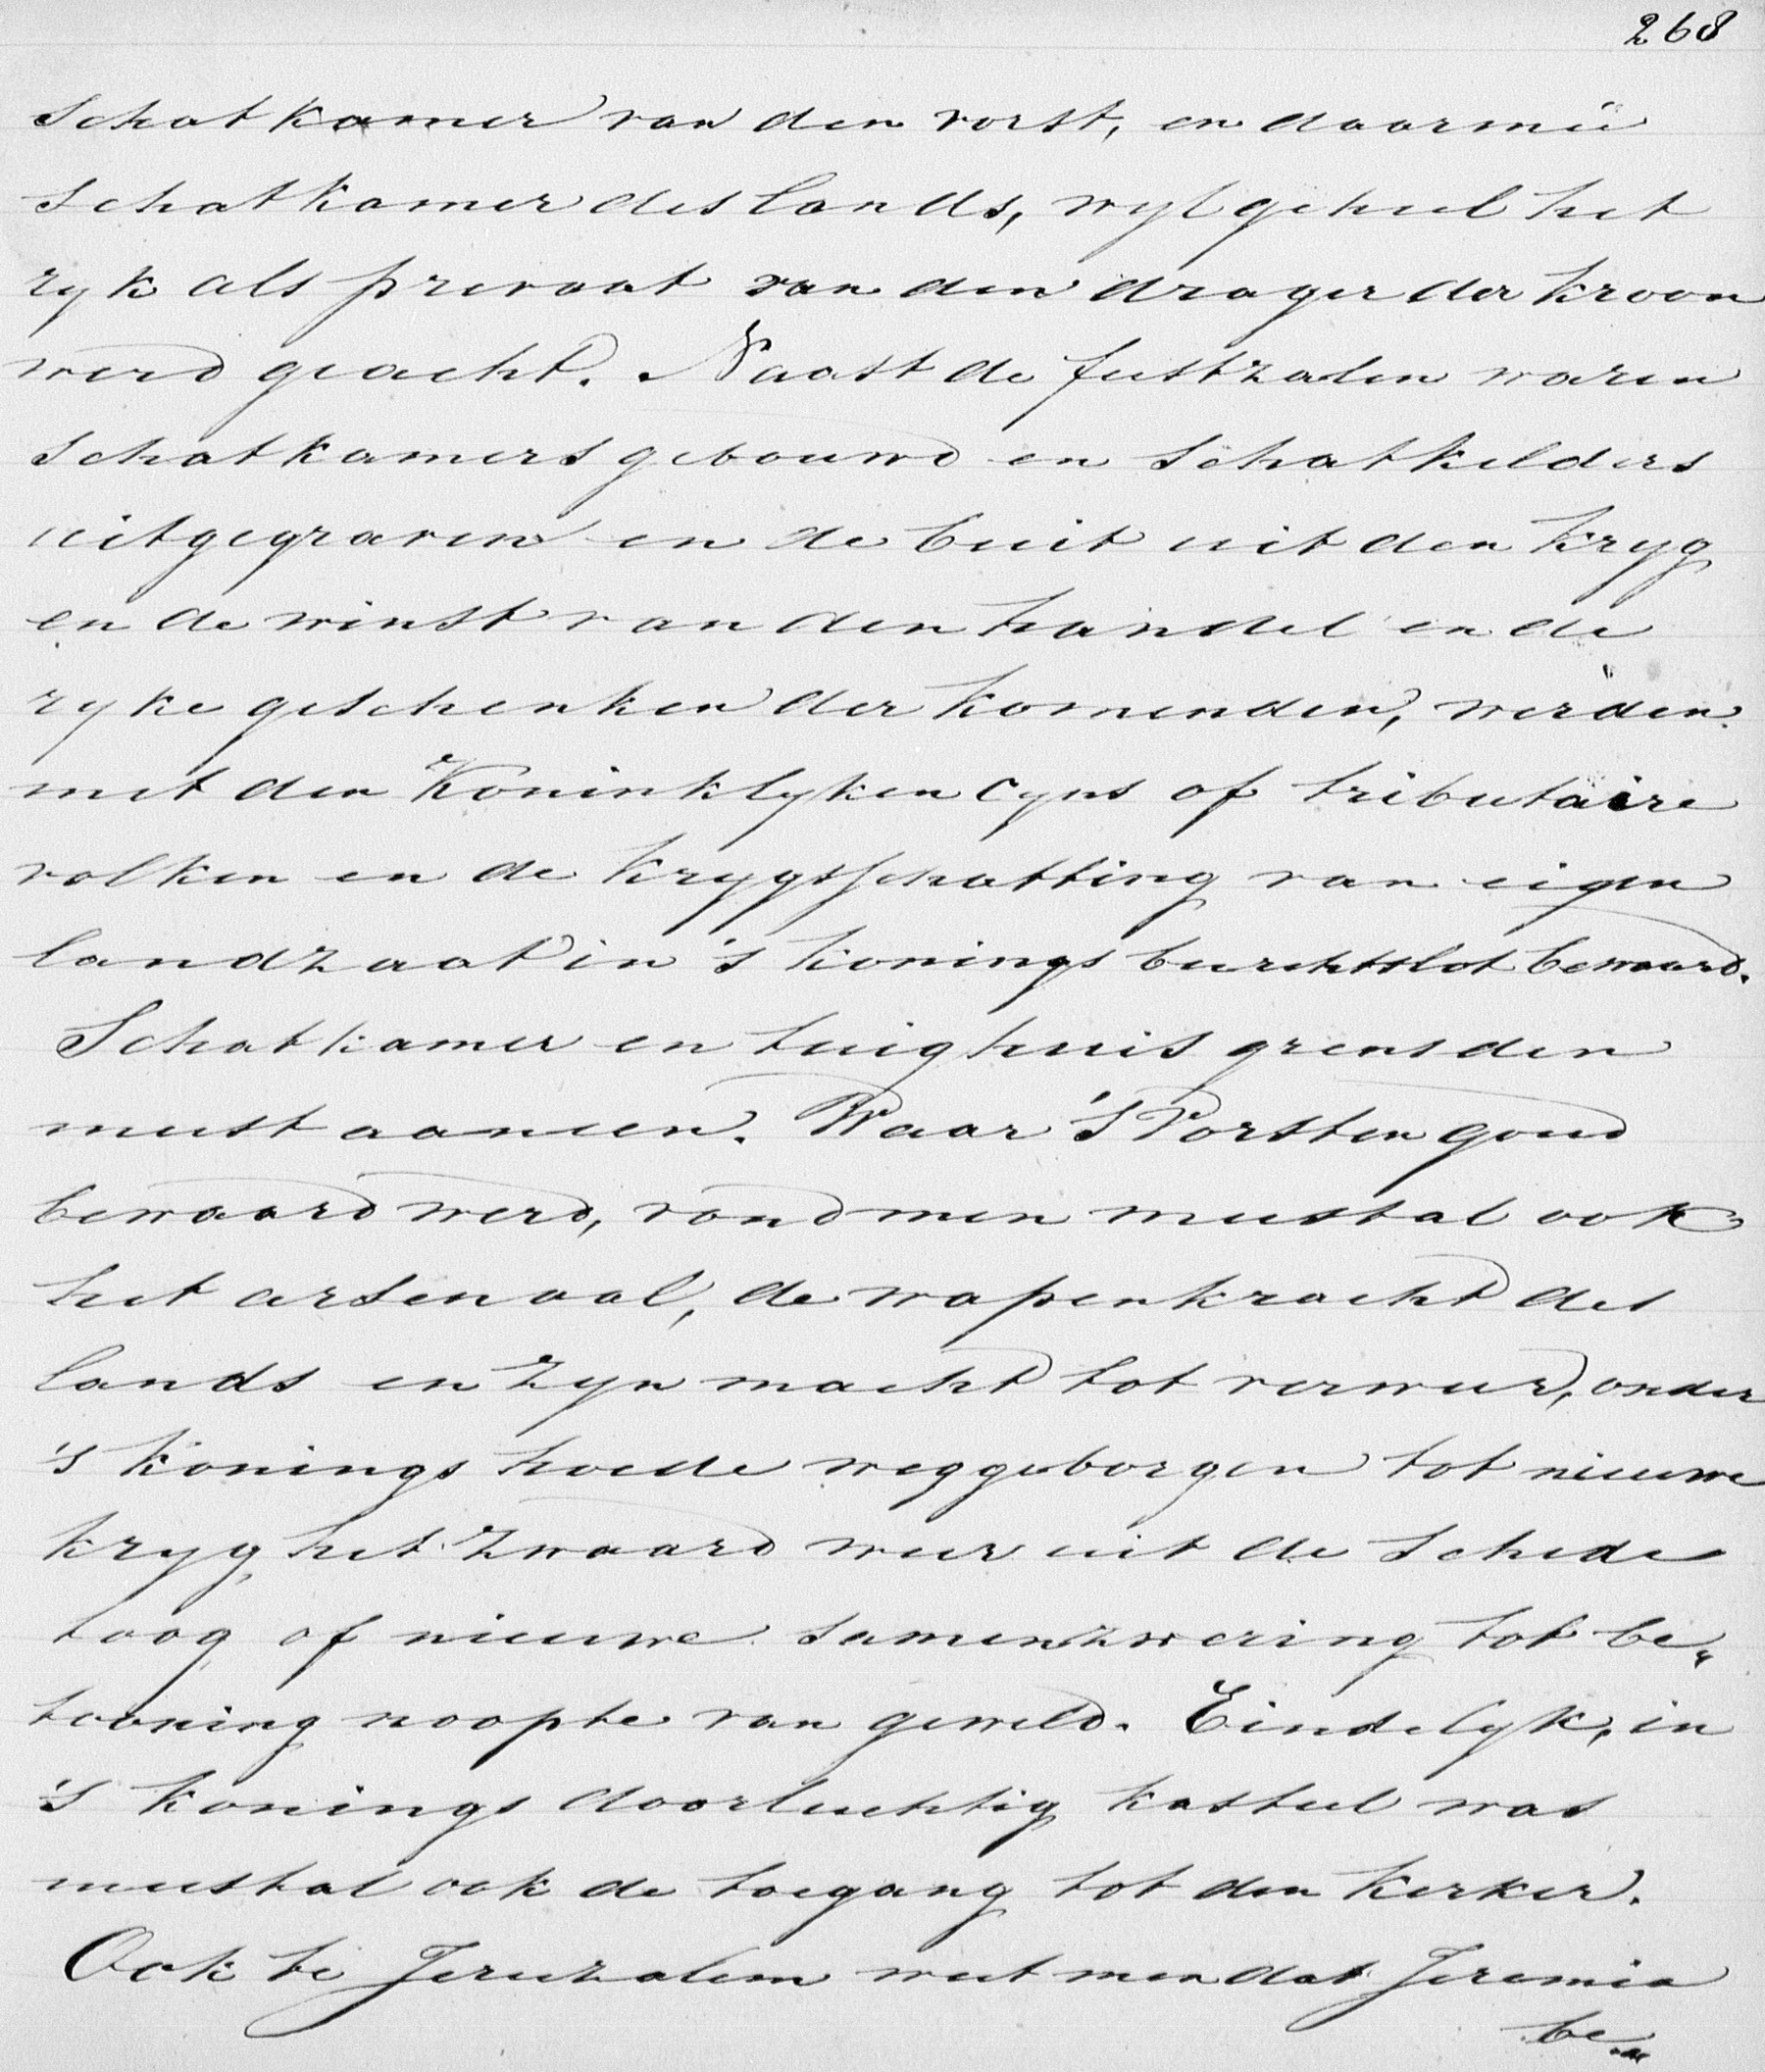 268
schatkamer van den vorst, en daarmeê
schatkamer des lands, wyl geheel het
ryk als privaat van den drager der kroon
werd geacht. Naast de feestzalen waren
schatkamers gebouwd en schatkelders
uitgegraven en de buit uit den kryg
en de winst van den handel en de
ryke geschenken der komenden, werden
met den Koninklyken cyns of tributaire
volken en de krygsschatting van eigen
landzaat in 's konings burchtslot bewaard.
Schatkamer en tuighuis grensden
meest aaneen. Waar 's Vorsten goud
bewaard werd, vond men meestal ook
het arsenaal, de wapenkracht des
lands en zyn macht tot verweer, onder
's konings hoede weggeborgen tot nieuwe
kryg het zwaard weer uit de schede
toog of nieuwe samenzwering tot be„
tooning noopte van geweld. Eindelyk, in
's konings doorluchtig kasteel was
meestal ook de toegang tot den kerker.
Ook te Jeruzalem weet men dat Jeremia
be„